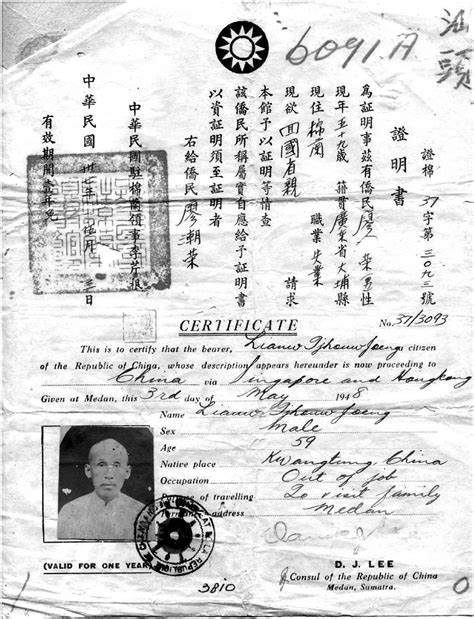 6091.A
汕頭
證棉37字第三〇九三號
證明書
為証明事茲有僑民廖 荣男性
現年五十九歲 籍貫廣東省大埔縣
現住棉蘭 職業失業
現欲回國省親 請求
本館予以証明等情查
該僑民所稱屬實自應給予証明書
以資証明須至証明者
右給僑民廖潮荣
中華民國駐棉蘭領事李芹根
中華民國卅七年伍月三日
有效期間壹年
CERTIFICATE
No. 37/3093
This is to certify that the bearer, Liauw Tjhouw Joeng citizen
of the Republic of China, whose description appears hereunder is now proceeding to
China via Singapore and Hongkong
Given at Medan, this 3rd day of May 1948
Name Liauw Tjhouw Joeng
Sex Male
Age 59
Native place Kwangtung, China
Occupation Out of job
Purpose of travelling To visit family
address Medan
(VALID FOR ONE YEAR)
3810
D. J. LEE
Consul of the Republic of China
Medan, Sumatra.